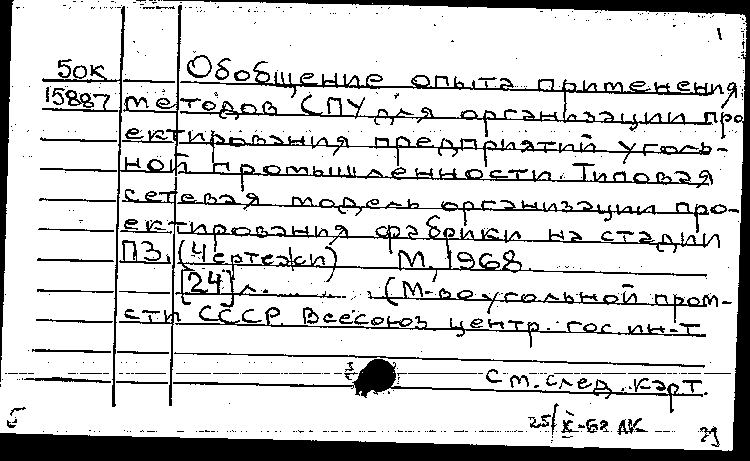 1
50К Обобщение опыта применения
15887 методов СПУ для организации про
ектирования предприятий уголь-
ной промышленности. Типовая
сетевая модель организации про-
ектирования фабрики на стадии
ПЗ. (Чертежи) М., 1968.
[24] л. (М-во угольной пром-
сти СССР. Всесоюз. центр. гос. ин-т
См. след. карт.